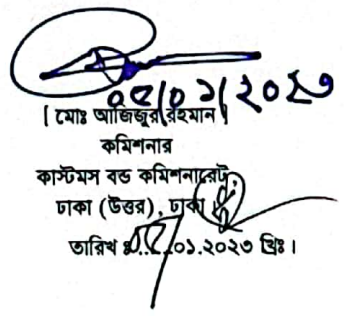 ০৫/০১/২০২৩
[ মোঃ আজিজুর রহমান ]
কমিশনার
কাস্টমস বন্ড কমিশনারেট
ঢাকা (উত্তর), ঢাকা।
তারিখ ঃ ০৫.০১.২০২৩ খ্রিঃ।